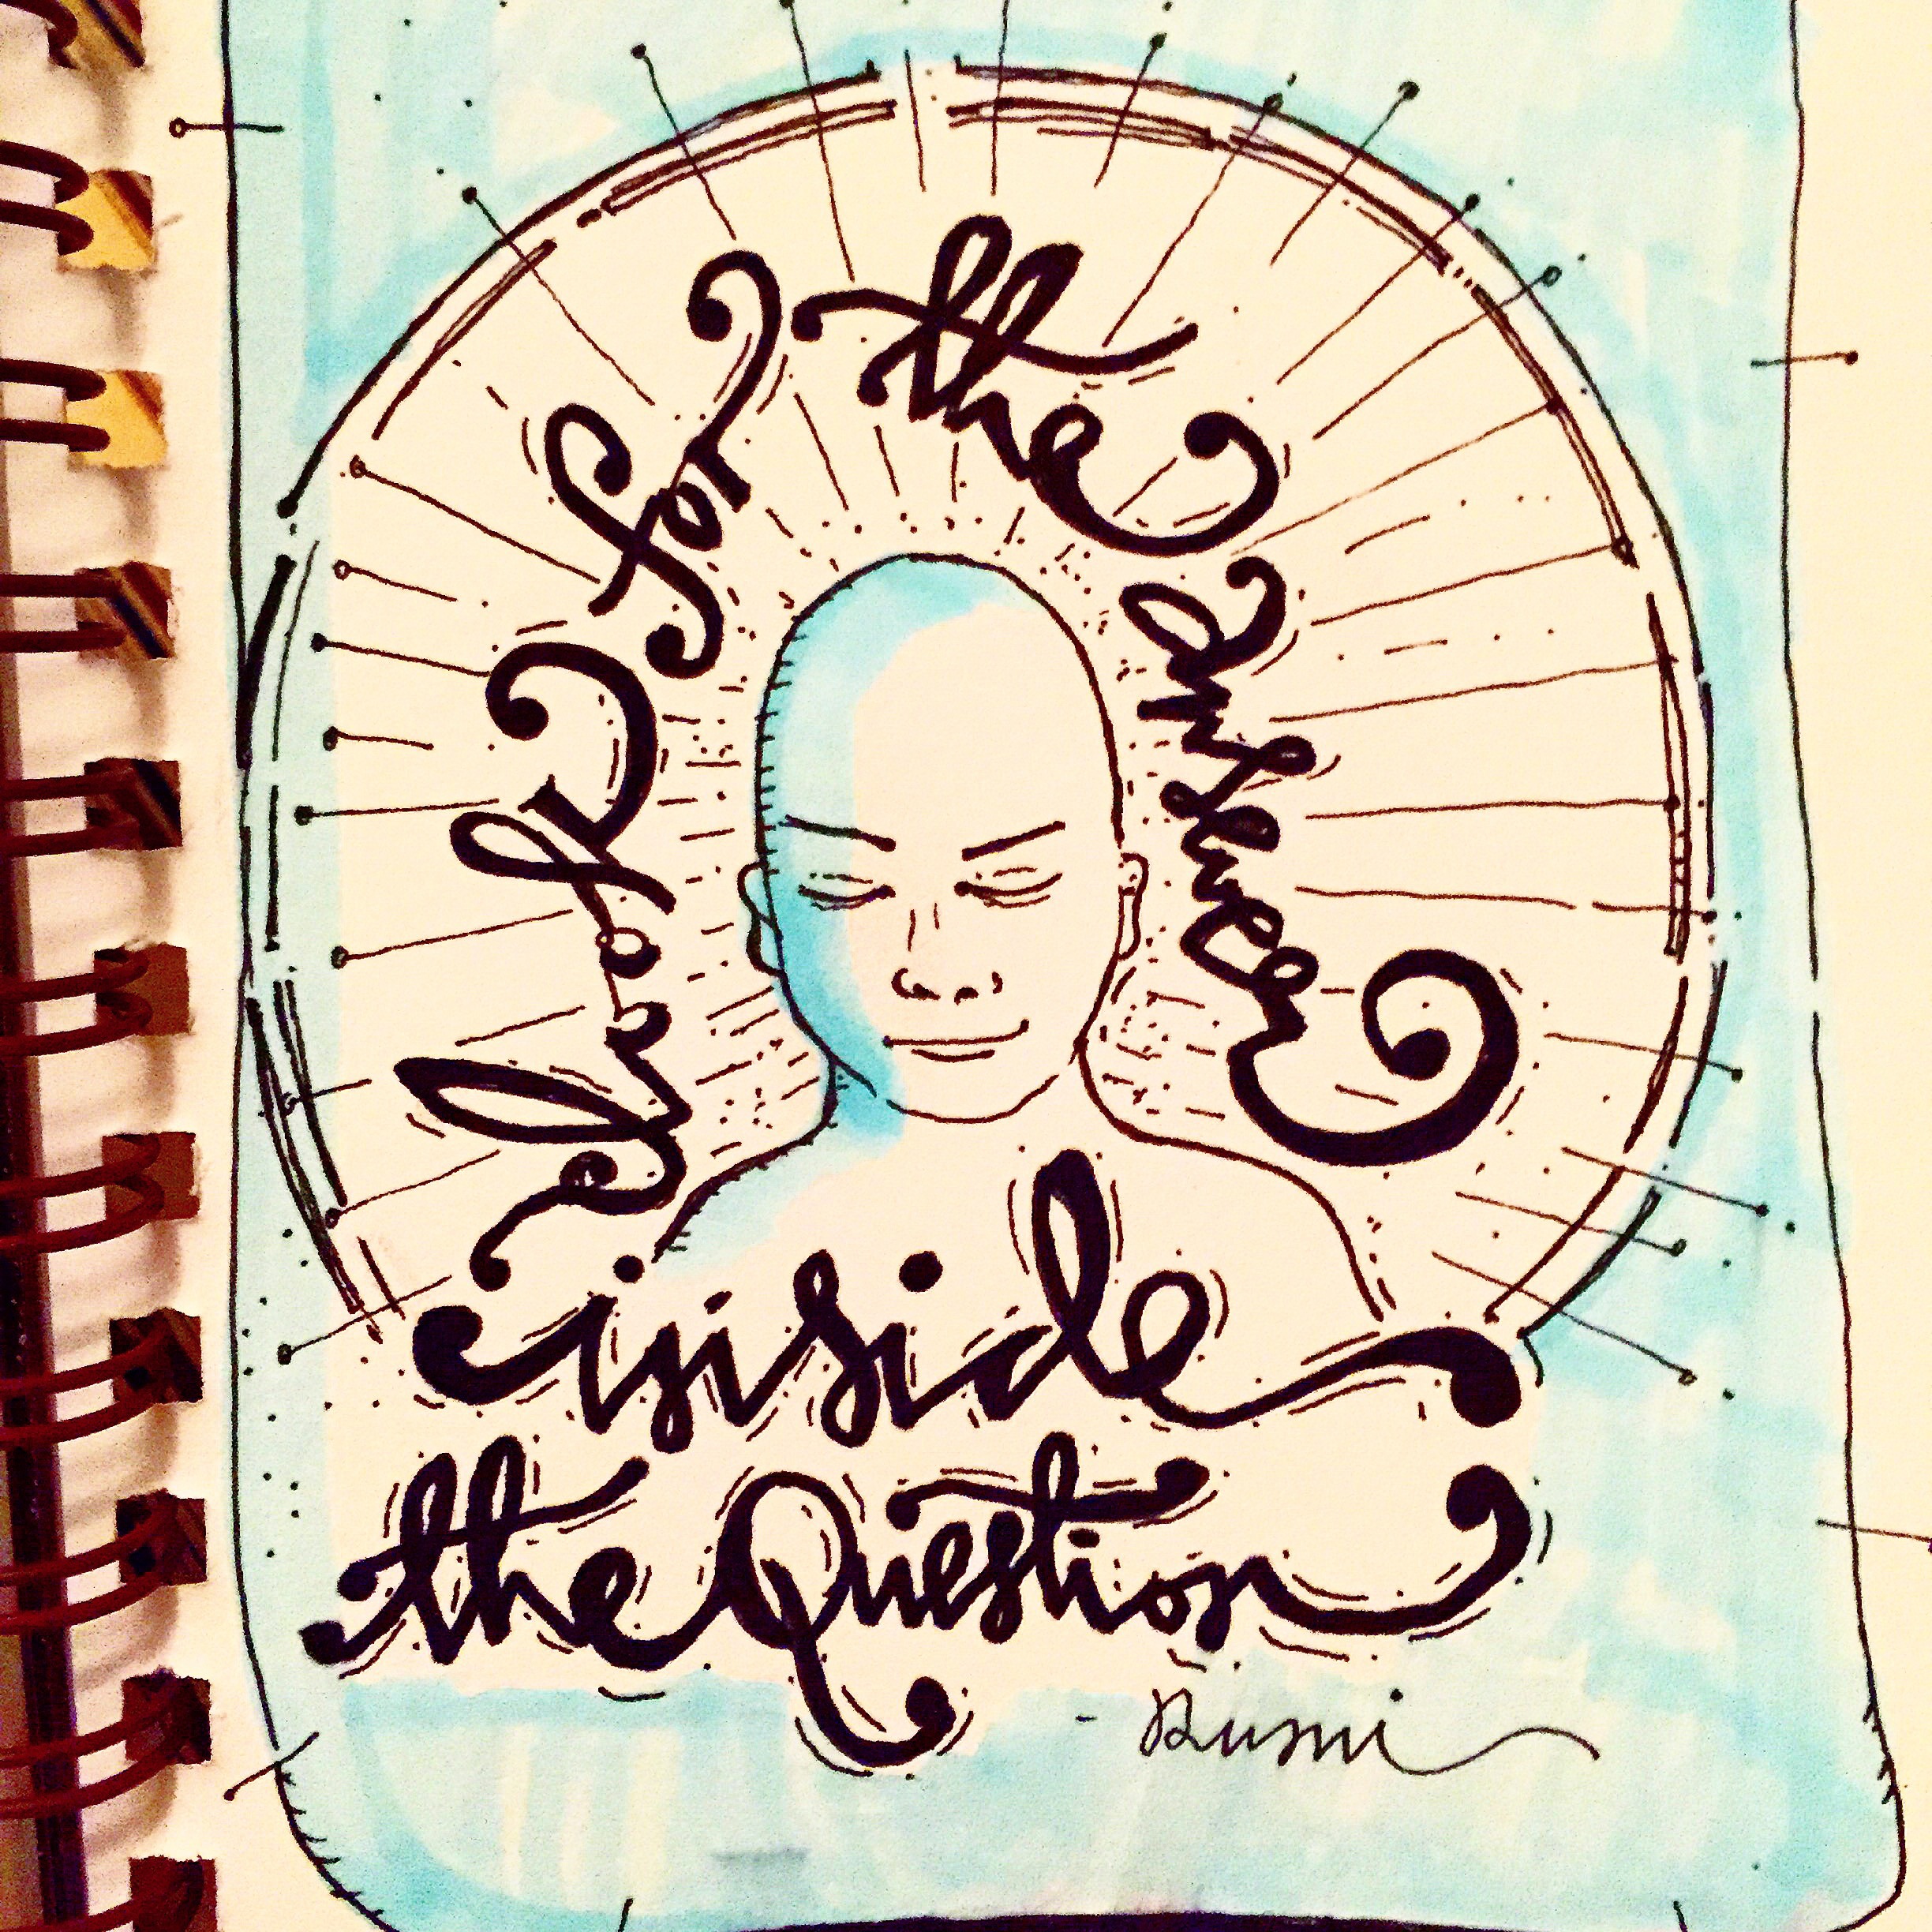 look for the answer
inside
the Question
- Rumi